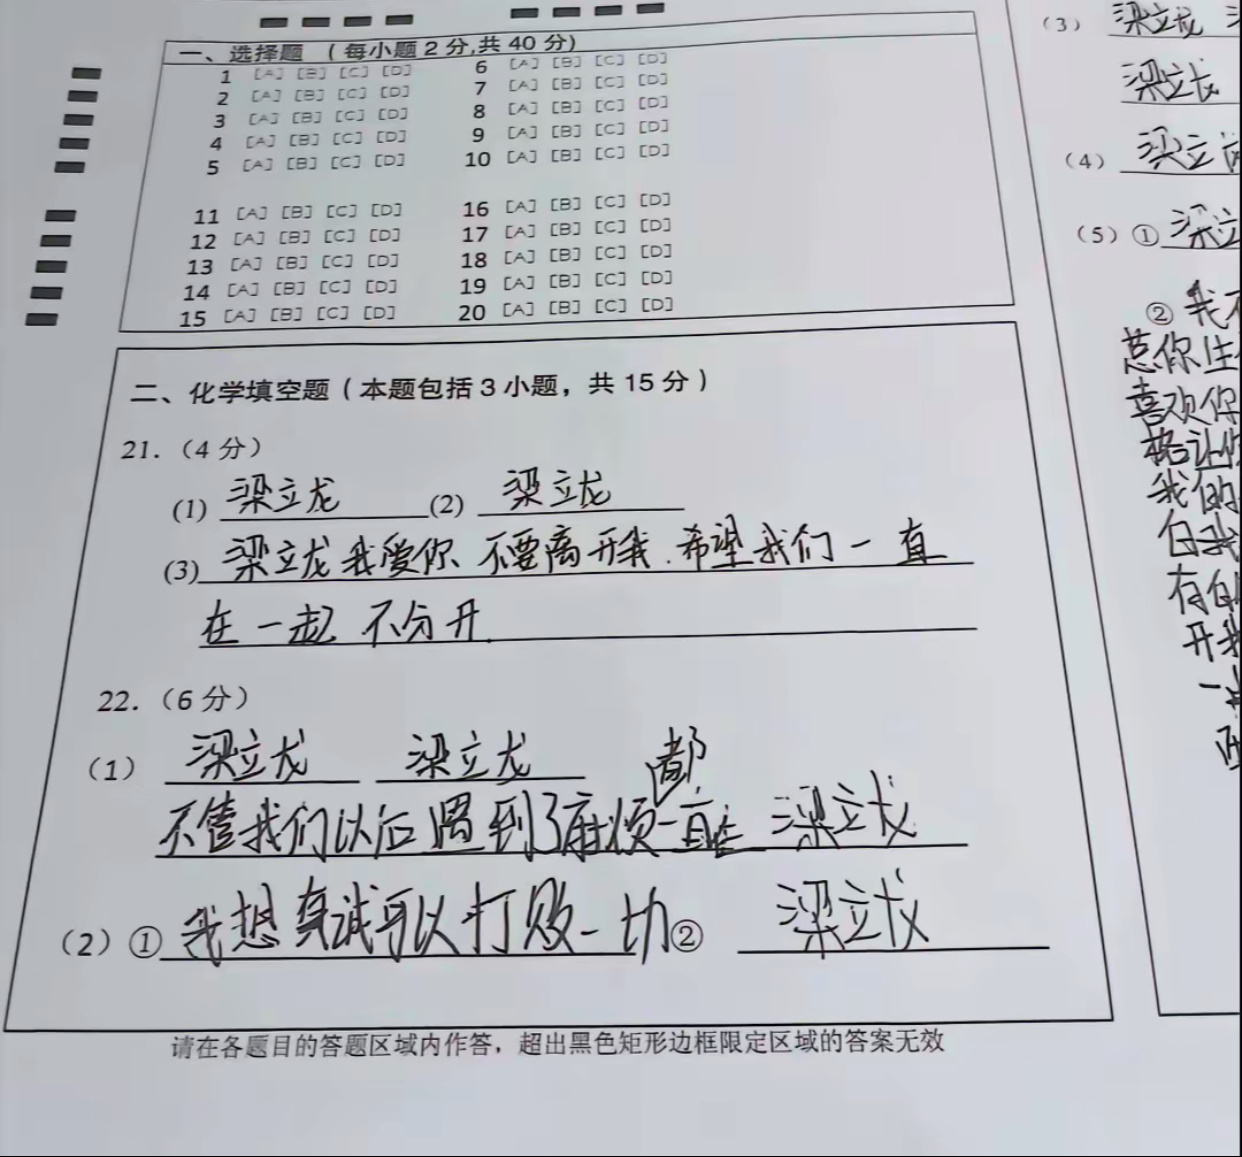 一、选择题 （每小题2分,共40分）
1 [A] [B] [C] [D] 6 [A] [B] [C] [D]
2 [A] [B] [C] [D] 7 [A] [B] [C] [D]
3 [A] [B] [C] [D] 8 [A] [B] [C] [D]
4 [A] [B] [C] [D] 9 [A] [B] [C] [D]
5 [A] [B] [C] [D] 10 [A] [B] [C] [D]
11 [A] [B] [C] [D] 16 [A] [B] [C] [D]
12 [A] [B] [C] [D] 17 [A] [B] [C] [D]
13 [A] [B] [C] [D] 18 [A] [B] [C] [D]
14 [A] [B] [C] [D] 19 [A] [B] [C] [D]
15 [A] [B] [C] [D] 20 [A] [B] [C] [D]
二、化学填空题（本题包括3小题，共15分）
21.（4分）
(1) 梁立龙 (2) 梁立龙
(3) 梁立龙我爱你 不要离开我.希望我们一直
在一起 不分开.
22.（6分）
（1） 梁立龙 梁立龙 都
不管我们以后遇到了麻烦一直在 梁立龙
（2）① 我想真诚可以打败一切② 梁立龙
请在各题目的答题区域内作答，超出黑色矩形边框限定区域的答案无效
（3） 梁立龙
梁立龙
（4） 梁立
（5）① 梁立
② 我不
惹你生
喜欢你
格让你
我的
白我
有的
开我
一